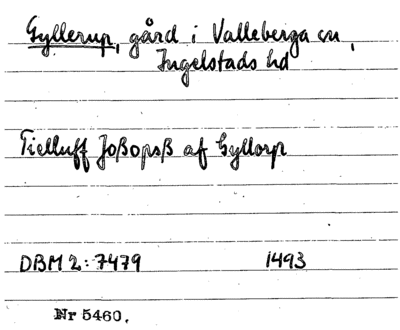 Gyllerup, gård i Valleberga sn,
Ingelstads hd
Tielluff Joßopsß af Gyllorp
DBM 2: 7479 1493
Nr 5460.